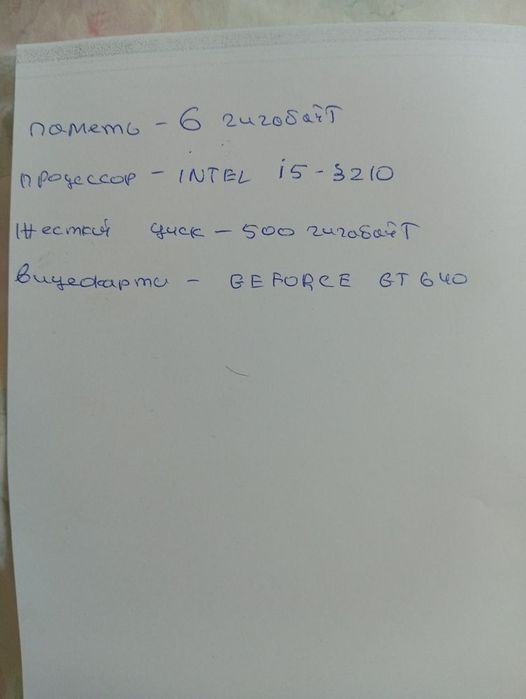 паметь - 6 гигобайт
процессор - INTEL i5-3210
жесткий диск - 500 гигобайт
видеокарта - GEFORCE GT 640